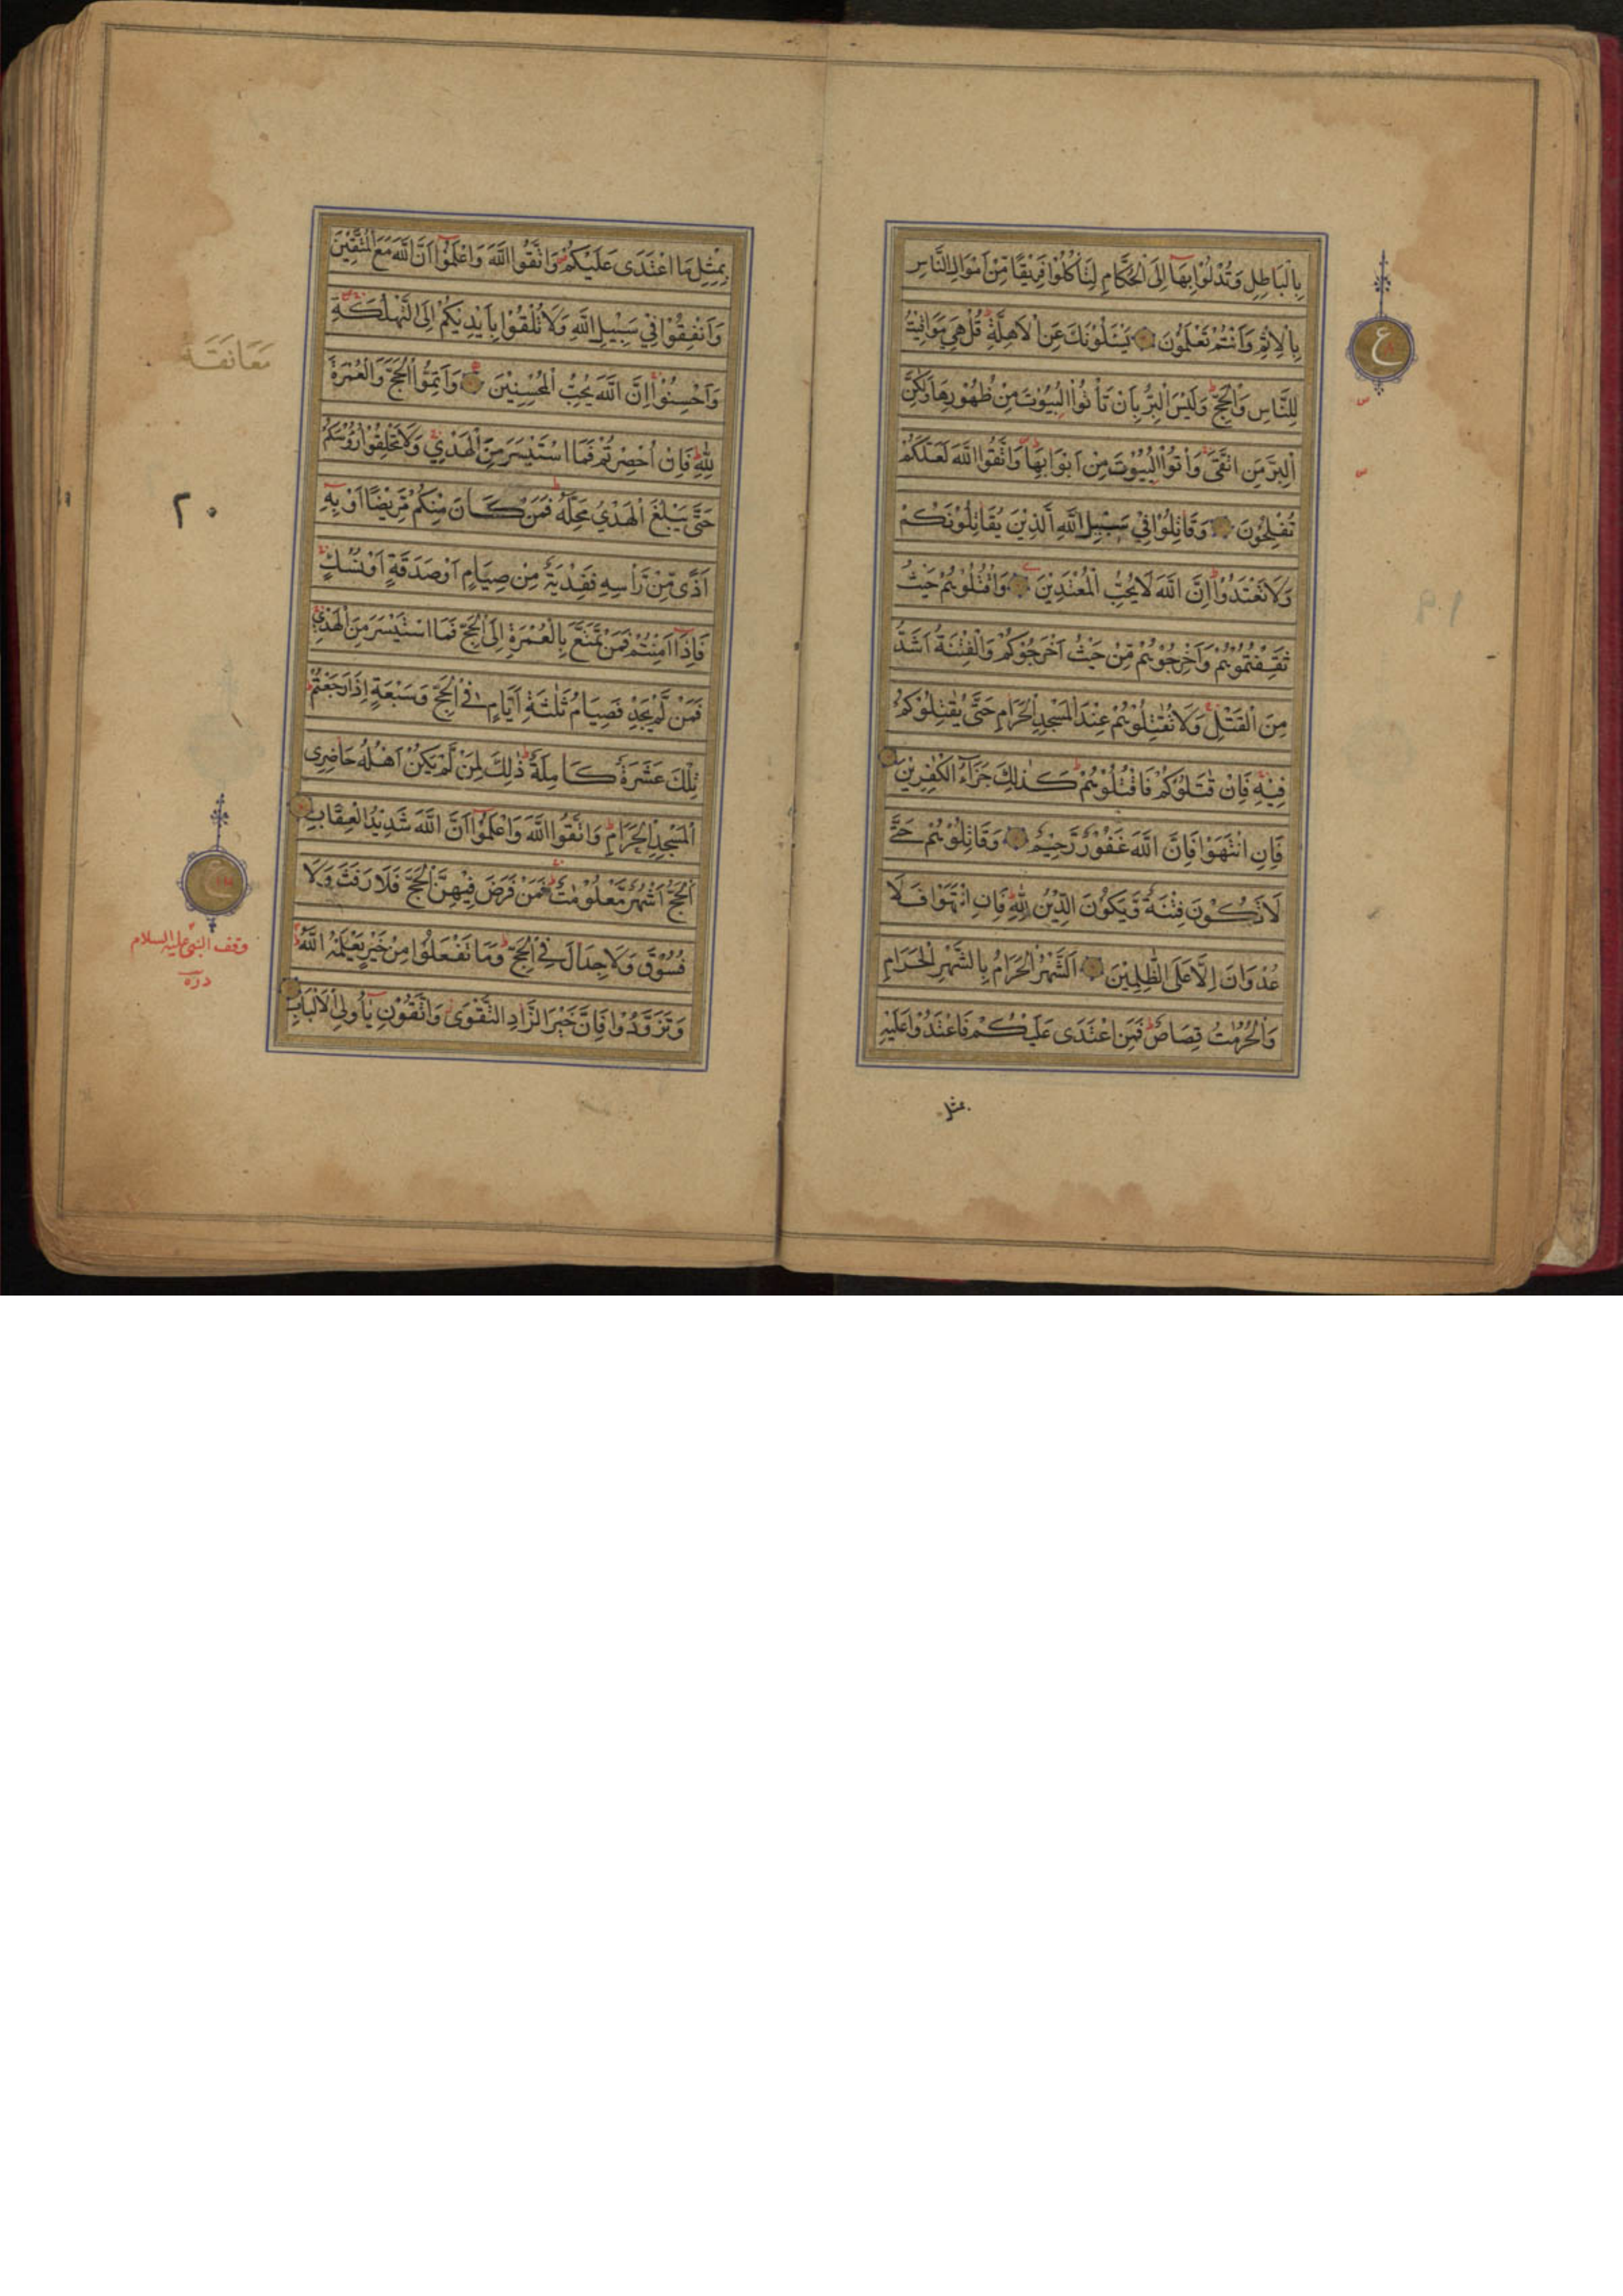 بِالْبَاطِلِ وَتُدْلُوْا بِهَآ اِلَى الْحُكَّامِ لِتَاْكُلُوْا فَرِيْقًا مِّنْ اَمْوَالِ النَّاسِ
بِالْاِثْمِ وَاَنْتُمْ تَعْلَمُوْنَ يَسْـَٔلُوْنَكَ عَنِ الْاَهِلَّةِ قُلْ هِيَ مَوَاقِيْتُ
لِلنَّاسِ وَالْحَجِّ وَلَيْسَ الْبِرُّ بِاَنْ تَاْتُوا الْبُيُوْتَ مِنْ ظُهُوْرِهَا وَلٰكِنَّ
الْبِرَّ مَنِ اتَّقٰى وَاْتُوا الْبُيُوْتَ مِنْ اَبْوَابِهَا وَاتَّقُوا اللّٰهَ لَعَلَّكُمْ
تُفْلِحُوْنَ وَقَاتِلُوْا فِيْ سَبِيْلِ اللّٰهِ الَّذِيْنَ يُقَاتِلُوْنَكُمْ
وَلَا تَعْتَدُوْا اِنَّ اللّٰهَ لَا يُحِبُّ الْمُعْتَدِيْنَ وَاقْتُلُوْهُمْ حَيْثُ
ثَقِفْتُمُوْهُمْ وَاَخْرِجُوْهُمْ مِّنْ حَيْثُ اَخْرَجُوْكُمْ وَالْفِتْنَةُ اَشَدُّ
مِنَ الْقَتْلِ وَلَا تُقٰتِلُوْهُمْ عِنْدَ الْمَسْجِدِ الْحَرَامِ حَتّٰى يُقٰتِلُوْكُمْ
فِيْهِ فَاِنْ قٰتَلُوْكُمْ فَاقْتُلُوْهُمْ كَذٰلِكَ جَزَآءُ الْكٰفِرِيْنَ
فَاِنِ انْتَهَوْا فَاِنَّ اللّٰهَ غَفُوْرٌ رَّحِيْمٌ وَقَاتِلُوْهُمْ حَتّٰى
لَا تَكُوْنَ فِتْنَةٌ وَّيَكُوْنَ الدِّيْنُ لِلّٰهِ فَاِنِ انْتَهَوْا فَلَا
عُدْوَانَ اِلَّا عَلَى الظّٰلِمِيْنَ اَلشَّهْرُ الْحَرَامُ بِالشَّهْرِ الْحَرَامِ
وَالْحُرُمٰتُ قِصَاصٌ فَمَنِ اعْتَدٰى عَلَيْكُمْ فَاعْتَدُوْا عَلَيْهِ
بمثل
ع
س
س
١٩
بِمِثْلِ مَا اعْتَدٰى عَلَيْكُمْ وَاتَّقُوا اللّٰهَ وَاعْلَمُوْٓا اَنَّ اللّٰهَ مَعَ الْمُتَّقِيْنَ
وَاَنْفِقُوْا فِيْ سَبِيْلِ اللّٰهِ وَلَا تُلْقُوْا بِاَيْدِيْكُمْ اِلَى التَّهْلُكَةِ
وَاَحْسِنُوْا اِنَّ اللّٰهَ يُحِبُّ الْمُحْسِنِيْنَ وَاَتِمُّوا الْحَجَّ وَالْعُمْرَةَ
لِلّٰهِ فَاِنْ اُحْصِرْتُمْ فَمَا اسْتَيْسَرَ مِنَ الْهَدْيِ وَلَا تَحْلِقُوْا رُءُوْسَكُمْ
حَتّٰى يَبْلُغَ الْهَدْيُ مَحِلَّهٗ فَمَنْ كَانَ مِنْكُمْ مَّرِيْضًا اَوْ بِهٖٓ
اَذًى مِّنْ رَّاْسِهٖ فَفِدْيَةٌ مِّنْ صِيَامٍ اَوْ صَدَقَةٍ اَوْ نُسُكٍ
فَاِذَآ اَمِنْتُمْ فَمَنْ تَمَتَّعَ بِالْعُمْرَةِ اِلَى الْحَجِّ فَمَا اسْتَيْسَرَ مِنَ الْهَدْيِ
فَمَنْ لَّمْ يَجِدْ فَصِيَامُ ثَلٰثَةِ اَيَّامٍ فِي الْحَجِّ وَسَبْعَةٍ اِذَا رَجَعْتُمْ
تِلْكَ عَشَرَةٌ كَامِلَةٌ ذٰلِكَ لِمَنْ لَّمْ يَكُنْ اَهْلُهٗ حَاضِرِى
الْمَسْجِدِ الْحَرَامِ وَاتَّقُوا اللّٰهَ وَاعْلَمُوْٓا اَنَّ اللّٰهَ شَدِيْدُ الْعِقَابِ
اَلْحَجُّ اَشْهُرٌ مَّعْلُوْمٰتٌ فَمَنْ فَرَضَ فِيْهِنَّ الْحَجَّ فَلَا رَفَثَ وَلَا
فُسُوْقَ وَلَا جِدَالَ فِي الْحَجِّ وَمَا تَفْعَلُوْا مِنْ خَيْرٍ يَّعْلَمْهُ اللّٰهُ
وَتَزَوَّدُوْا فَاِنَّ خَيْرَ الزَّادِ التَّقْوٰى وَاتَّقُوْنِ يٰٓاُولِى الْاَلْبَابِ
مُعَانَقَة
٢٠
وقف النبى عليه السلام